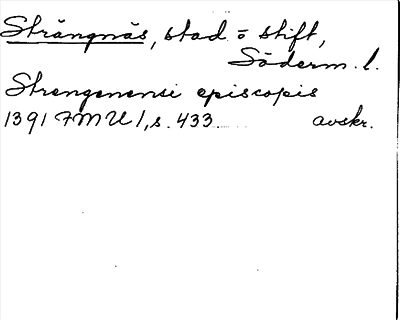 Strängnäs, stad o stift,
Söderm. l.
Strengenensi episcopis
1391 FMU 1, s. 433 avskr.